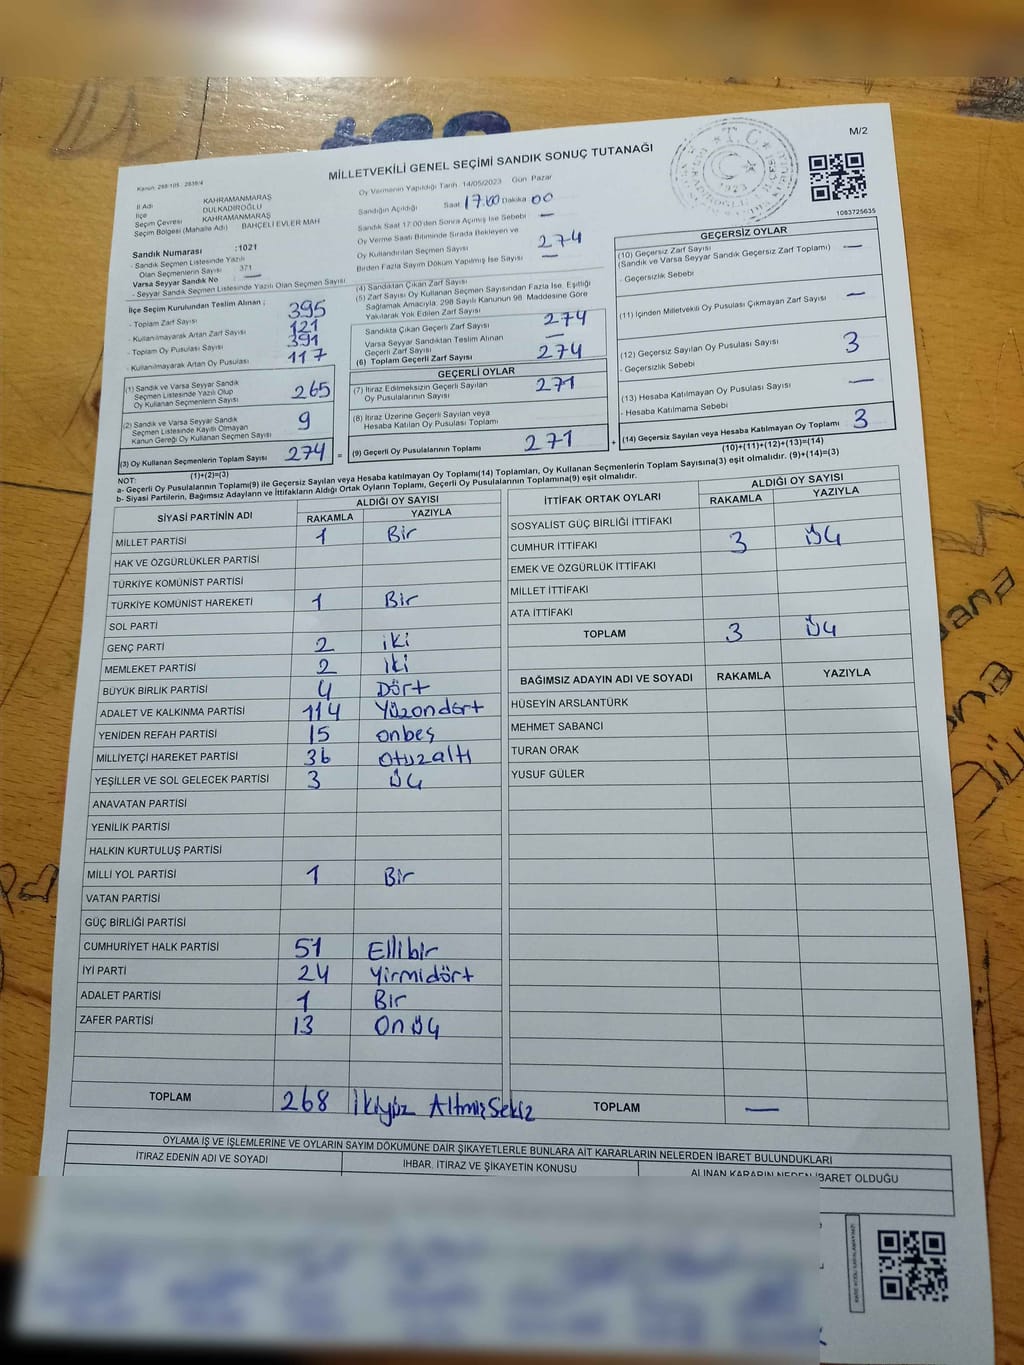 M/2
MİLLETVEKİLİ GENEL SEÇİMİ SANDIK SONUÇ TUTANAĞI
T.C.
1923
1083725635
İl Adı KAHRAMANMARAŞ
İlçe DULKADİROĞLU
Seçim Çevresi KAHRAMANMARAŞ
Seçim Bölgesi (Mahalle Adı) BAHÇELİ EVLER MAH
Sandık Numarası :1021
- Sandık Seçmen Listesinde Yazılı
Olan Seçmenlerin Sayısı 371
Varsa Seyyar Sandık No —
- Seyyar Sandık Seçmen Listesinde Yazılı Olan Seçmen Sayısı
Oy Vermenin Yapıldığı Tarih 14/05/2023 Gün Pazar
Sandığın Açıldığı Saat 17.00 Dakika 00
Sandık Saat 17:00'den Sonra Açılmış İse Sebebi —
Oy Verme Saati Bitiminde Sırada Bekleyen ve
Oy Kullandırılan Seçmen Sayısı 274
Birden Fazla Sayım Döküm Yapılmış İse Sayısı —
İlçe Seçim Kurulundan Teslim Alınan ;
- Toplam Zarf Sayısı 395
- Kullanılmayarak Artan Zarf Sayısı 121
- Toplam Oy Pusulası Sayısı 391
- Kullanılmayarak Artan Oy Pusulası 117
(1) Sandık ve Varsa Seyyar Sandık
Seçmen Listesinde Yazılı Olup
Oy Kullanan Seçmenlerin Sayısı 265
(2) Sandık ve Varsa Seyyar Sandık
Seçmen Listesinde Kayıtlı Olmayan
Kanun Gereği Oy Kullanan Seçmen Sayısı 9
(3) Oy Kullanan Seçmenlerin Toplam Sayısı 274
(1)+(2)=(3)
(4) Sandıktan Çıkan Zarf Sayısı
(5) Zarf Sayısı Oy Kullanan Seçmen Sayısından Fazla İse, Eşitliği
Sağlamak Amacıyla, 298 Sayılı Kanunun 98. Maddesine Göre
Yakılarak Yok Edilen Zarf Sayısı
Sandıkta Çıkan Geçerli Zarf Sayısı 274
Varsa Seyyar Sandıktan Teslim Alınan
Geçerli Zarf Sayısı —
(6) Toplam Geçerli Zarf Sayısı 274
GEÇERLİ OYLAR
(7) İtiraz Edilmeksizin Geçerli Sayılan
Oy Pusulalarının Toplamı 271
(8) İtiraz Üzerine Geçerli Sayılan veya
Hesaba Katılan Oy Pusulası Toplamı
= (9) Geçerli Oy Pusulalarının Toplamı 271 +
GEÇERSİZ OYLAR
(10) Geçersiz Zarf Sayısı
(Sandık ve Varsa Seyyar Sandık Geçersiz Zarf Toplamı) —
- Geçersizlik Sebebi
(11) İçinden Milletvekili Oy Pusulası Çıkmayan Zarf Sayısı —
(12) Geçersiz Sayılan Oy Pusulası Sayısı 3
- Geçersizlik Sebebi
(13) Hesaba Katılmayan Oy Pusulası Sayısı —
- Hesaba Katılmama Sebebi
(14) Geçersiz Sayılan veya Hesaba Katılmayan Oy Toplamı 3
(10)+(11)+(12)+(13)=(14)
NOT:
a- Geçerli Oy Pusulalarının Toplamı(9) ile Geçersiz Sayılan veya Hesaba katılmayan Oy Toplamı(14) Toplamları, Oy Kullanan Seçmenlerin Toplam Sayısına(3) eşit olmalıdır. (9)+(14)=(3)
b- Siyasi Partilerin, Bağımsız Adayların ve İttifakların Aldığı Ortak Oyların Toplamı, Geçerli Oy Pusulalarının Toplamına(9) eşit olmalıdır.
SİYASİ PARTİNİN ADI ALDIĞI OY SAYISI
RAKAMLA YAZIYLA
MİLLET PARTİSİ 1 Bir
HAK VE ÖZGÜRLÜKLER PARTİSİ
TÜRKİYE KOMÜNİST PARTİSİ
TÜRKİYE KOMÜNİST HAREKETİ 1 Bir
SOL PARTİ
GENÇ PARTİ 2 iki
MEMLEKET PARTİSİ 2 iki
BÜYÜK BİRLİK PARTİSİ 4 Dört
ADALET VE KALKINMA PARTİSİ 114 Yüzondört
YENİDEN REFAH PARTİSİ 15 onbeş
MİLLİYETÇİ HAREKET PARTİSİ 36 otuzaltı
YEŞİLLER VE SOL GELECEK PARTİSİ 3 Üç
ANAVATAN PARTİSİ
YENİLİK PARTİSİ
HALKIN KURTULUŞ PARTİSİ
MİLLİ YOL PARTİSİ 1 Bir
VATAN PARTİSİ
GÜÇ BİRLİĞİ PARTİSİ
CUMHURİYET HALK PARTİSİ 51 Ellibir
İYİ PARTİ 24 Yirmidört
ADALET PARTİSİ 1 Bir
ZAFER PARTİSİ 13 Onüç
TOPLAM 268 İkiyüz AltmışSekiz
İTTİFAK ORTAK OYLARI ALDIĞI OY SAYISI
RAKAMLA YAZIYLA
SOSYALİST GÜÇ BİRLİĞİ İTTİFAKI
CUMHUR İTTİFAKI 3 Üç
EMEK VE ÖZGÜRLÜK İTTİFAKI
MİLLET İTTİFAKI
ATA İTTİFAKI
TOPLAM 3 Üç
BAĞIMSIZ ADAYIN ADI VE SOYADI RAKAMLA YAZIYLA
HÜSEYİN ARSLANTÜRK
MEHMET SABANCI
TURAN ORAK
YUSUF GÜLER
TOPLAM —
OYLAMA İŞ VE İŞLEMLERİNE VE OYLARIN SAYIM DÖKÜMÜNE DAİR ŞİKAYETLERLE BUNLARA AİT KARARLARIN NELERDEN İBARET BULUNDUKLARI
İTİRAZ EDENİN ADI VE SOYADI İHBAR, İTİRAZ VE ŞİKAYETİN KONUSU ALINAN KARARIN NEDEN İBARET OLDUĞU